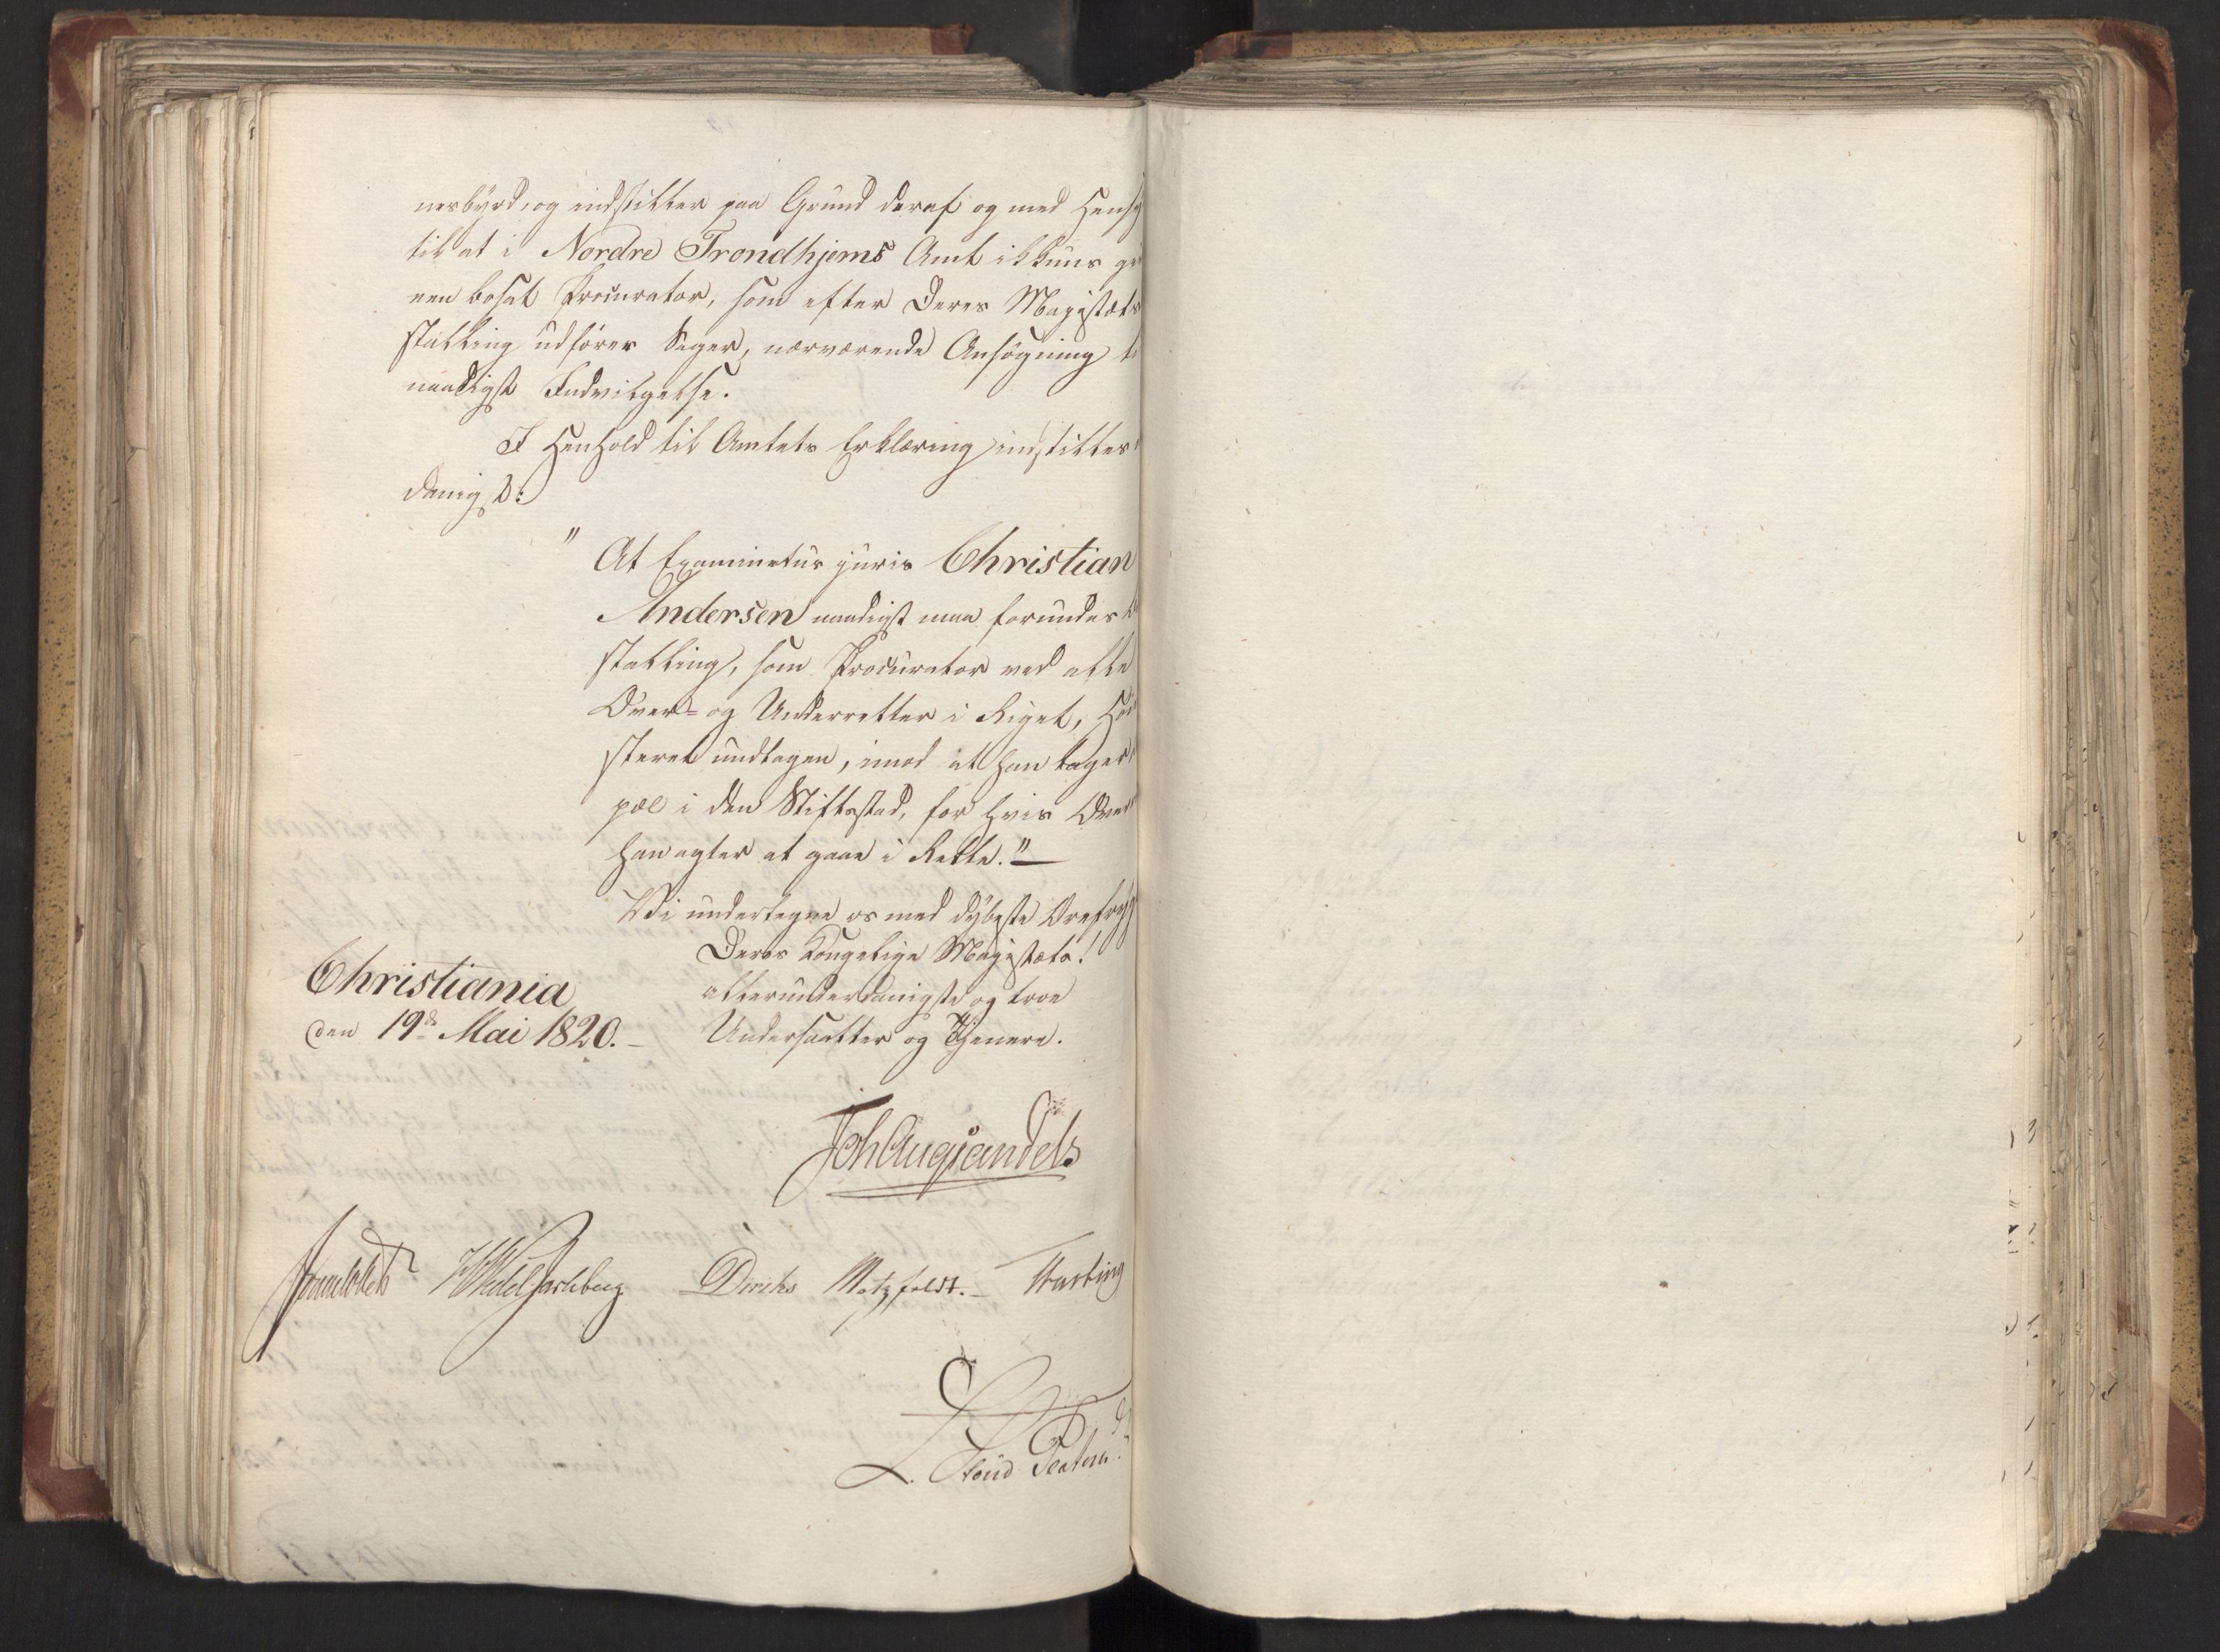 nesbyrd, og indstiller paa Grund deraf og med Hensy
til at i Nordre Trondhjems Amt ikkuns gi
nen bosat Procurator, som efter Deres Majestæts
stalling udfører Sager, nærværende Ansøgning t
naadigst Indvilgelse.
I Henhold til Amtets Erklæring indstilles
danigst:
" At Examinatus juris Christian
Andersen naadigst maa forundes B
stalling, som Procurator ved alle
Over- og Underretter i Riget, Høi
steret undtagen, imod at han tager
pæl i den Stiftsstad, for hvis Over
han agter at gaae i Rette."
Vi undertegne os med dybeste Ærefrygt
Deres Kongelige Majestæts!
allerunderdanigste og troe
Undersaatter og Tjenere.
Christiania
den 19de Mai 1820.
Joh Aug Sandels
Sommerhielm WedelJarlsberg Diriks Motzfeldt. Fasting
L. Stoud Platou